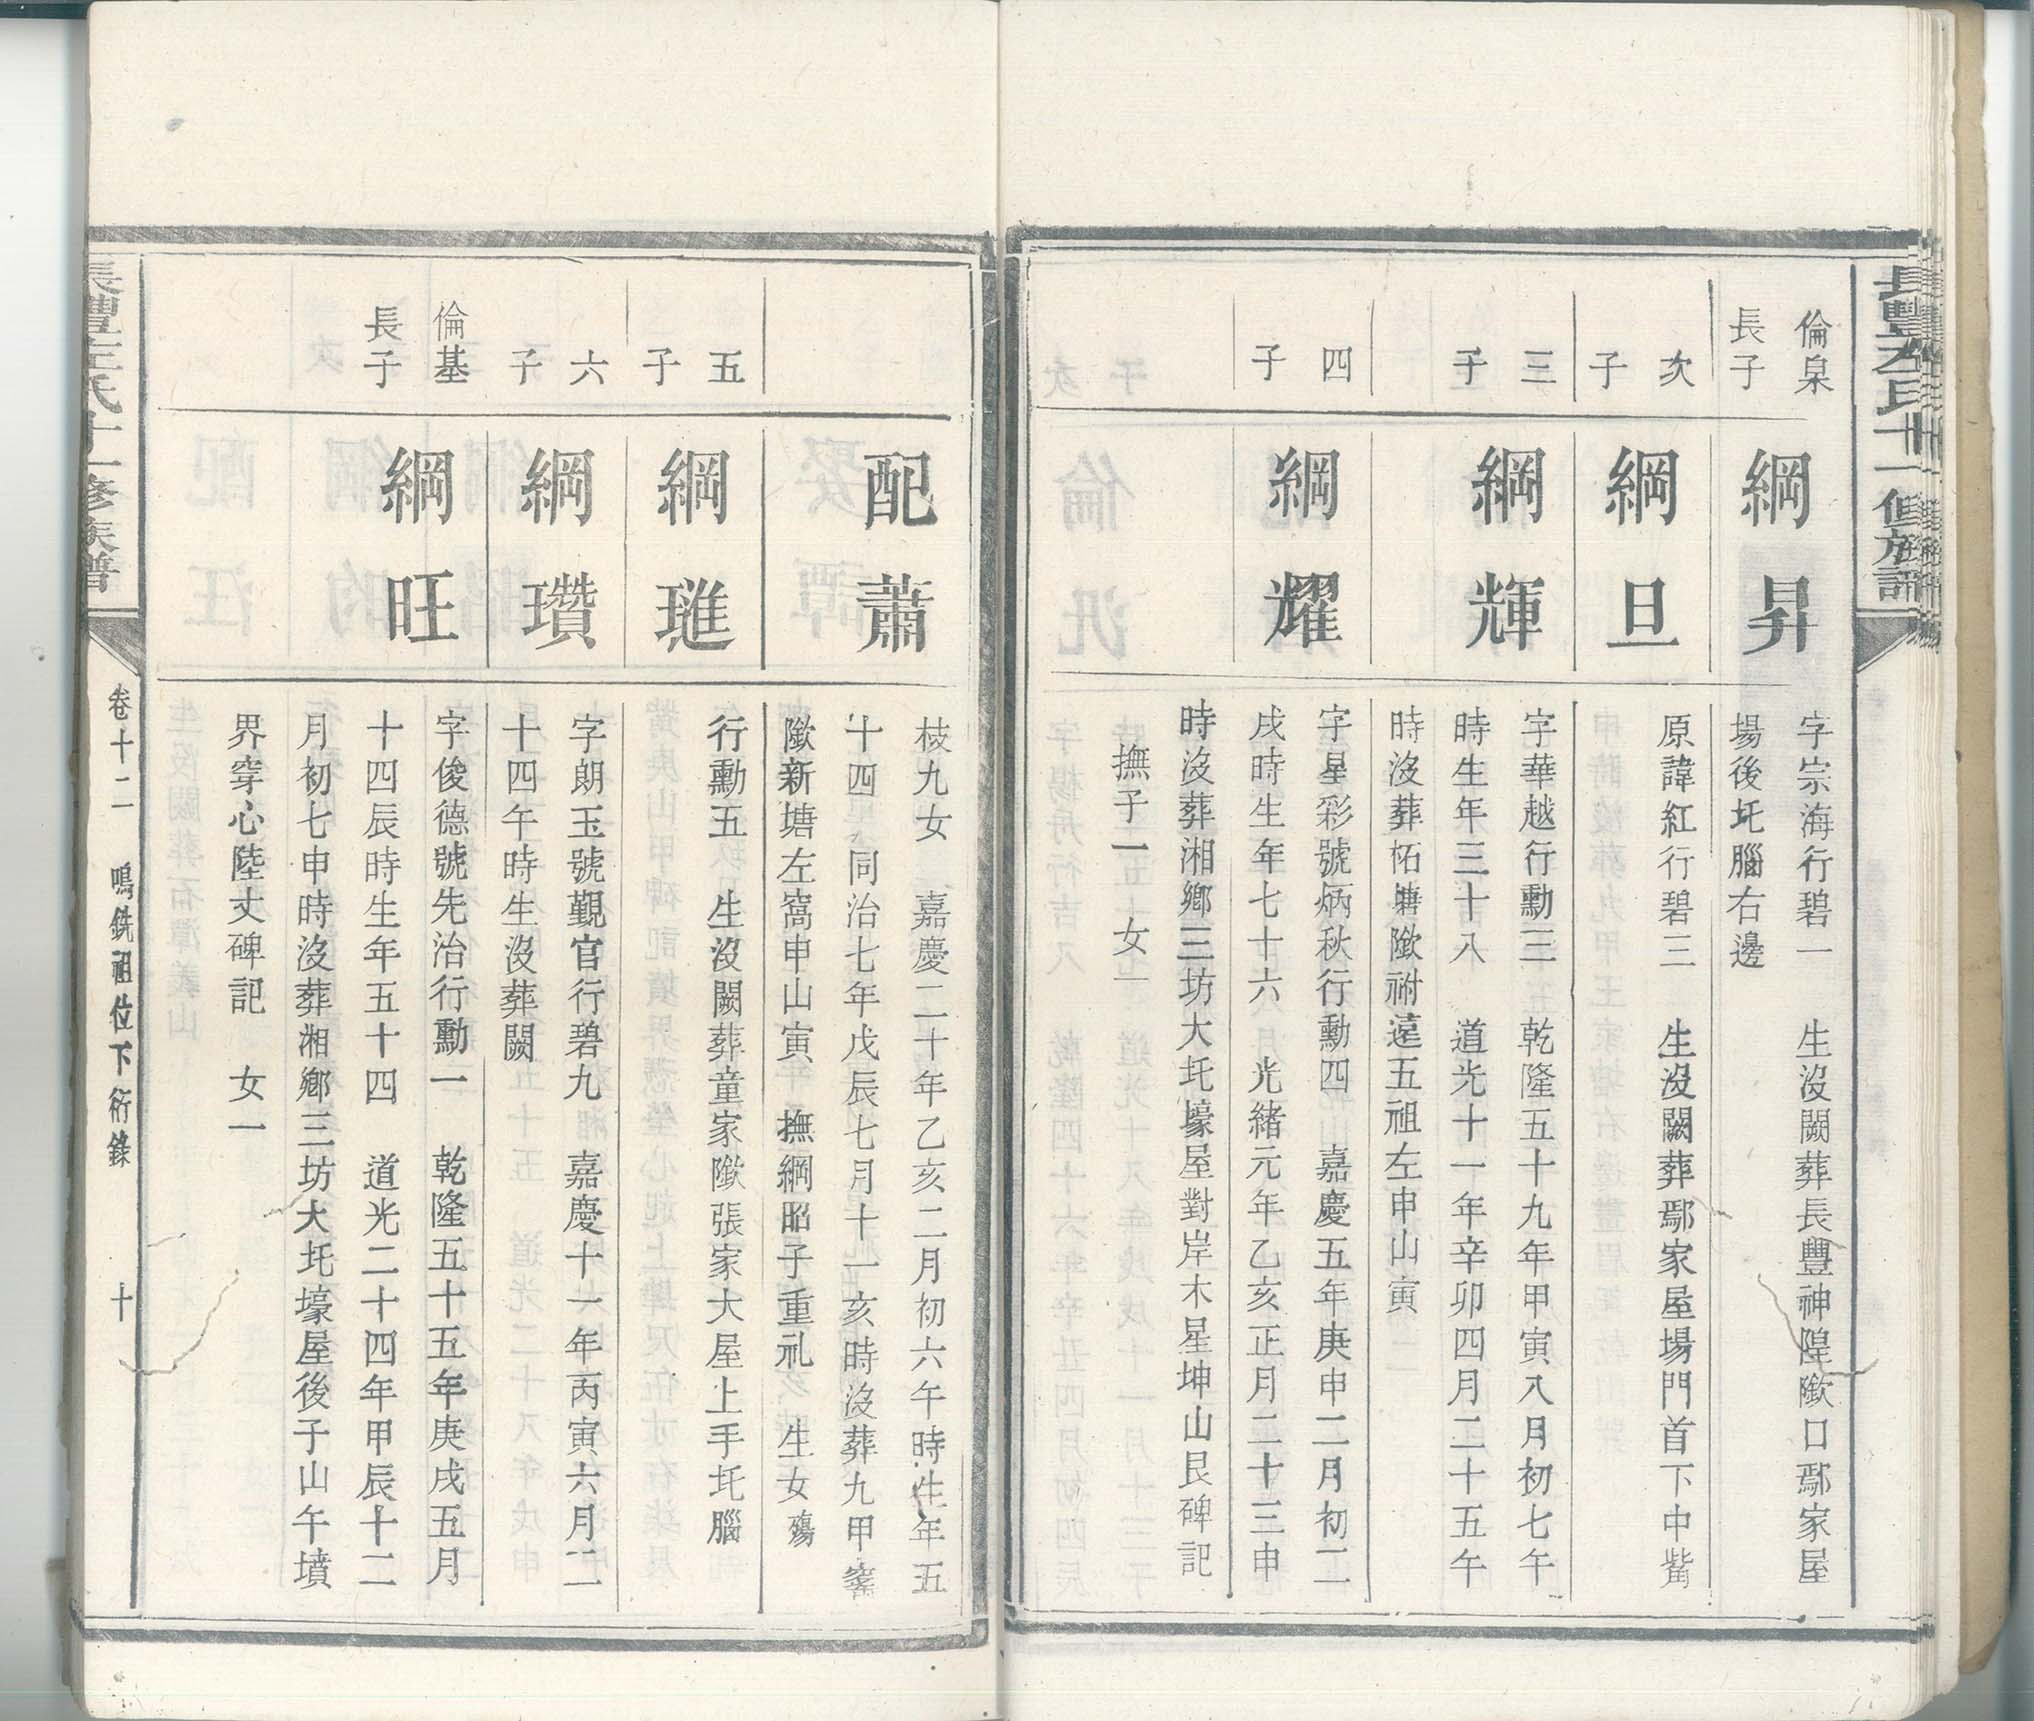 長豐左氏十一修族譜
倫臬
長子
綱昇
字宗海行碧一　生沒闕葬長豐神隍㘭口鄢家屋
場後圫腦右邊
次
子
綱旦
原諱紅行碧三　生沒闕葬鄢家屋場門首下中觜
三
子
綱輝
字華越行勳三　乾隆五十九年甲寅八月初七午
時生年三十八　道光十一年辛卯四月二十五午
時沒葬柘塘㘭祔遠五祖左申山寅
四
子
綱耀
字星彩號炳秋行勳四　嘉慶五年庚申二月初二
戌時生年七十六　光緒元年乙亥正月二十三申
時沒葬湘鄉三坊大圫壕屋對岸木星坤山艮碑記
撫子一　女一
配蕭
枝九女　嘉慶二十年乙亥二月初六午時生年五
十四　同治七年戊辰七月十一亥時沒葬九甲
㘭新塘左窩申山寅　撫綱昭子重礼　生女殤
五
子
綱璡
行勳五　生沒闕葬童家㘭張家大屋上手圫腦
六
子
綱瓚
字朗玉號觀官行碧九　嘉慶十一年丙寅六月二
十四午時生沒葬闕
倫基
長子
綱旺
字俊德號先治行勳一　乾隆五十五年庚戌五月
十四辰時生年五十四　道光二十四年甲辰十二
月初七申時沒葬湘鄉三坊大圫壕屋後子山午墳
界穿心陸丈碑記　女一
長豐左氏十一修族譜
卷十二　鳴銑祖位下衍錄　十